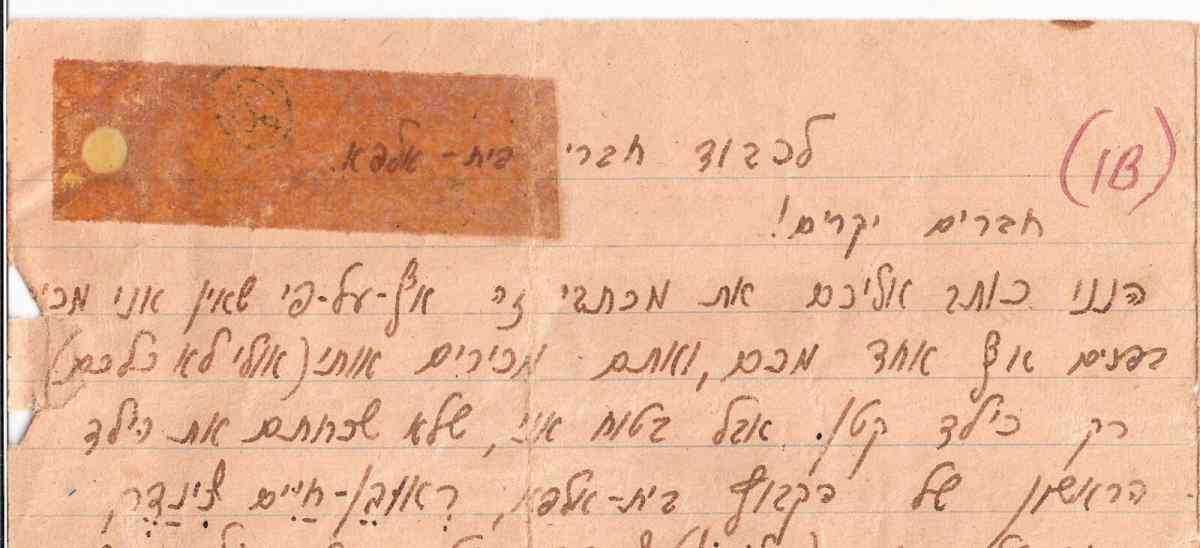 (1B)
לכבוד חברי בית-אלפא.
חברים יקרים!
הנני כותב אליכם את מכתבי זה אף-על-פי שאין אני מכי
בפנים אף אחד מכם, ואתם מכירים אותי (אולי לא כלכם)
רק כילד קטן. אבל בטוח אני, שלא שכחתם את הילד
הראשון של הקבוץ בית-אלפא, רְאוּבֵן-חַיִים